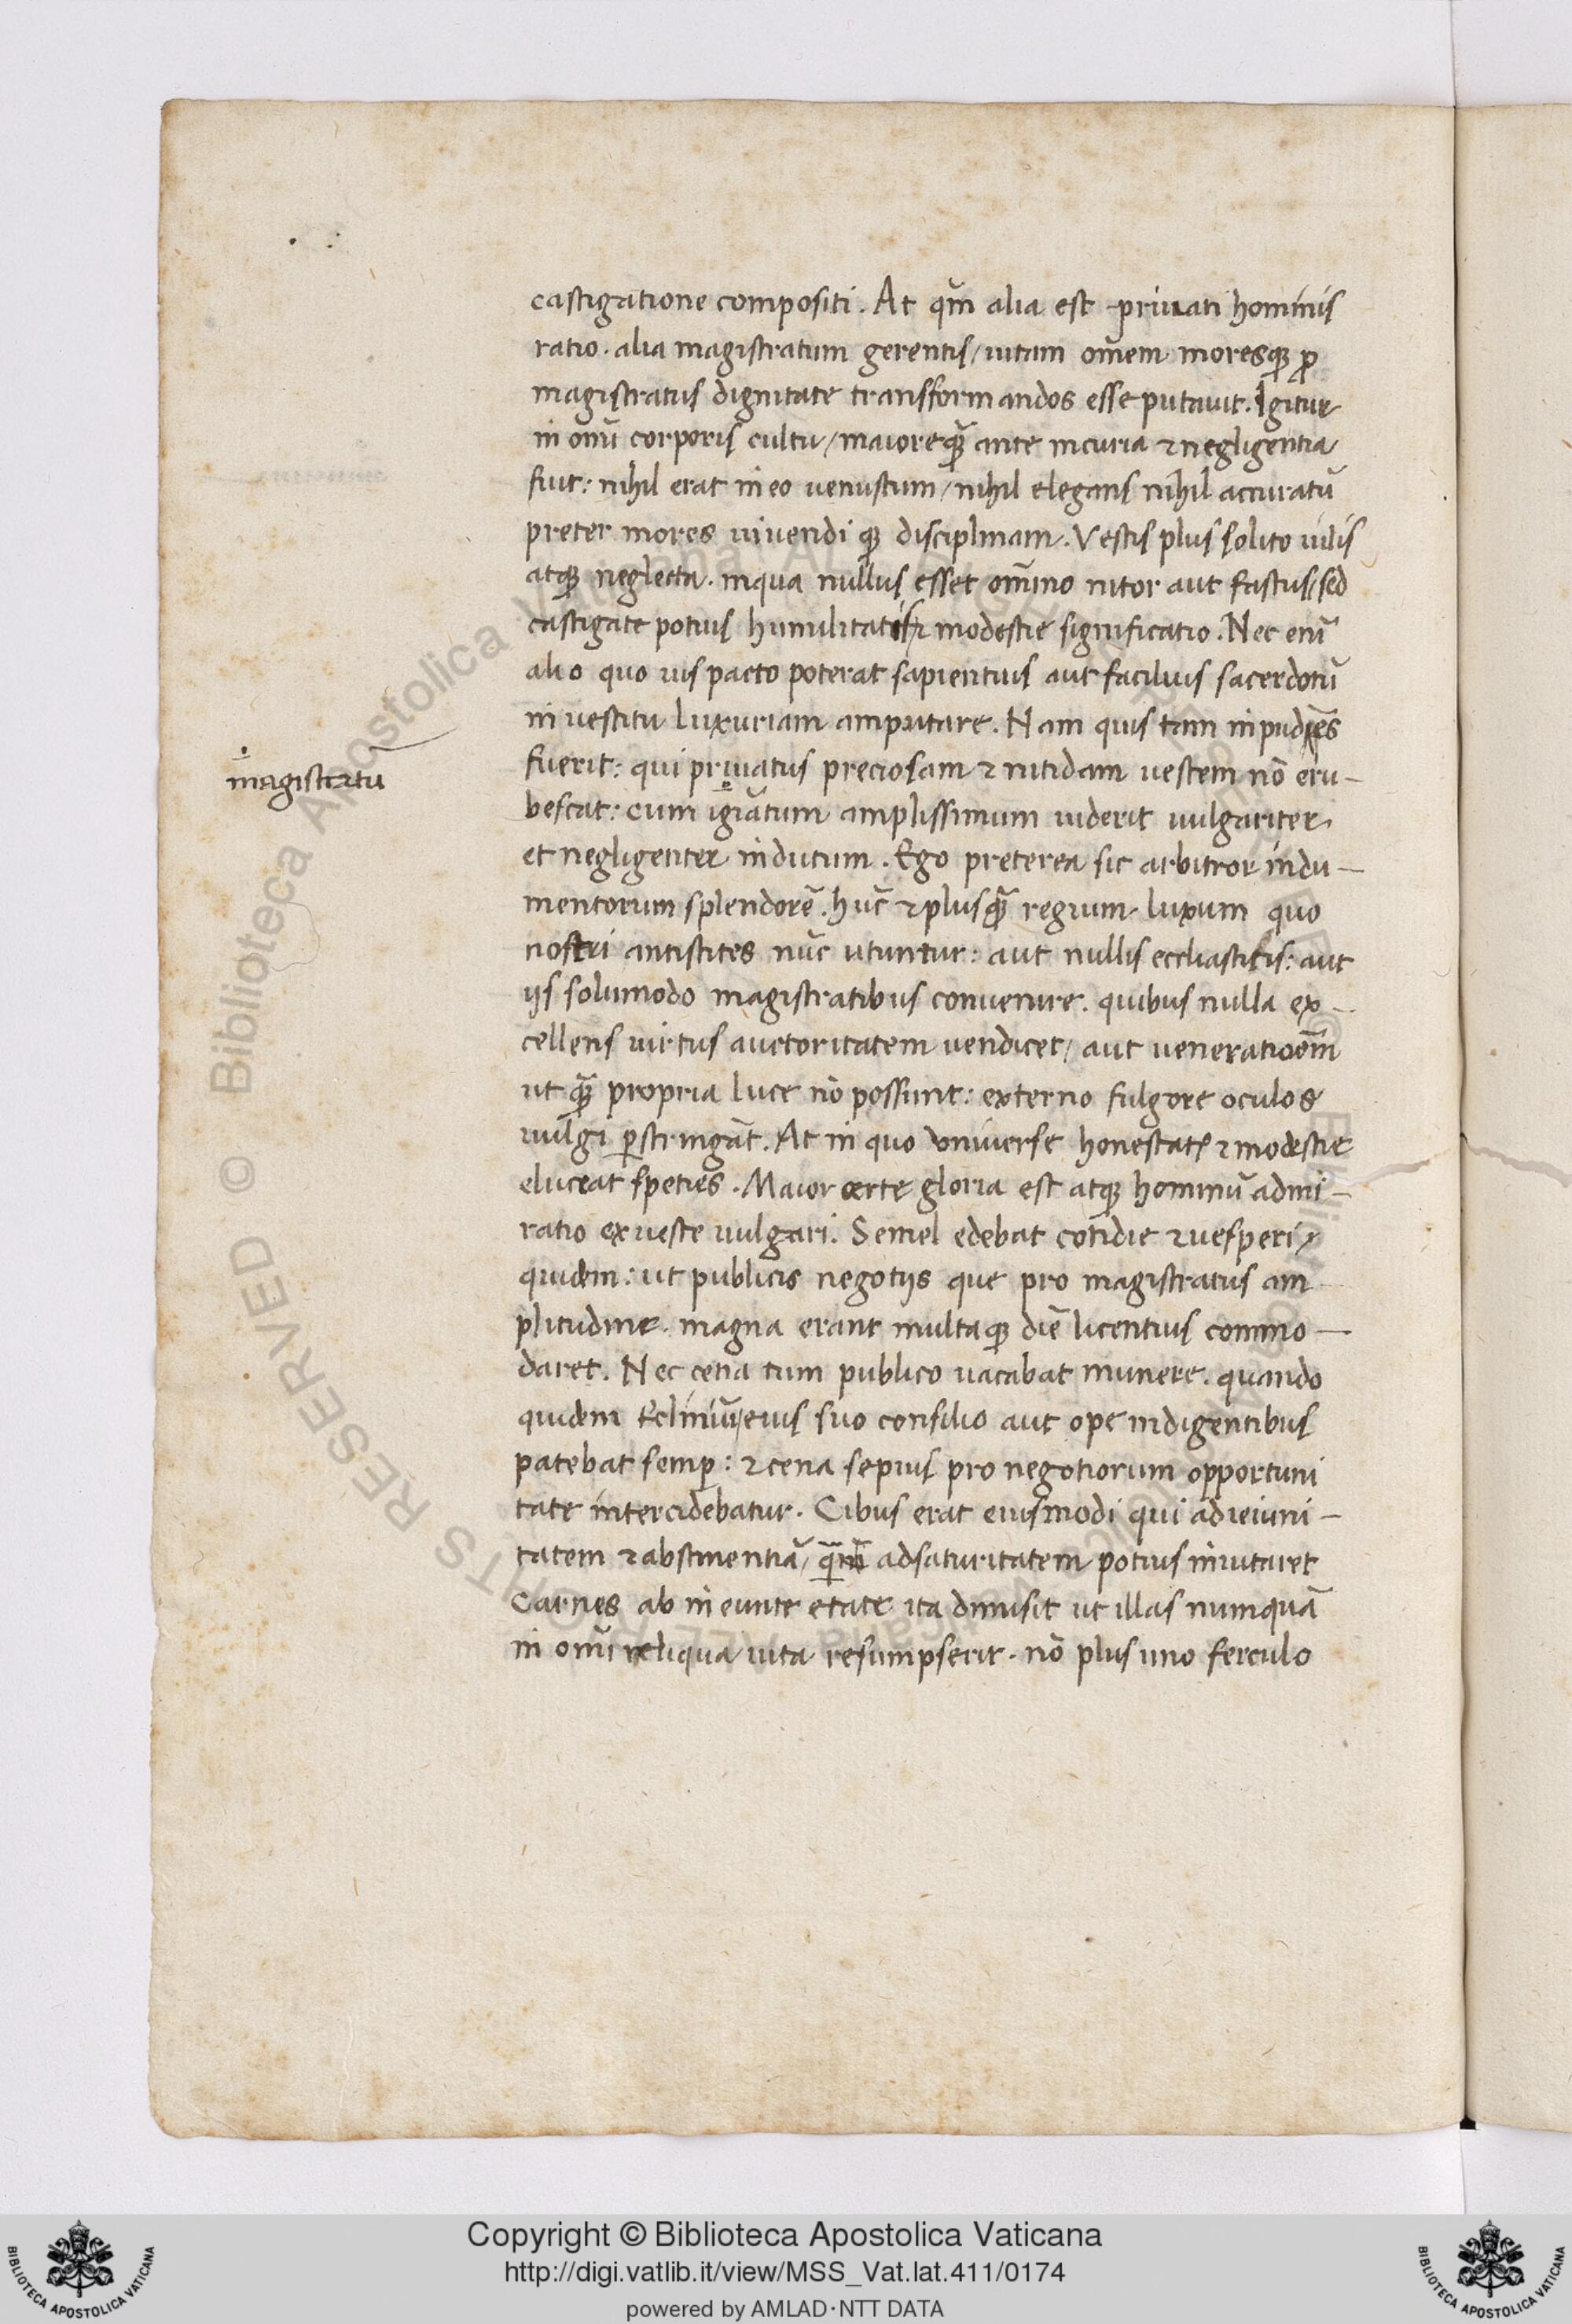 castigatione compositi. At qm̄ alia est priuati hominis
ratio. alia magistratum gerentis/ uitam om̄em moresqꝫ ꝓ
magistratus dignitate transformandos esse putauit. Igitur
in omī corporis cultu/ maiore qꝫ̄ ante incuria ⁊ negligentia
fuit: nihil erat in eo uenustum/ nihil elegans nihil accuratū
preter mores uiuendi qꝫ disciplinam. Vestis plus solito uilis
atqꝫ neglecta. inqua nullus esset om̄ino nitor aut fastus/ sed
castigate potius humilitatis ⁊ modestie significatio. Nec enī
alio quo uis pacto poterat sapientius aut facilius sacerdotū
in uestitu luxuriam amputare. Nam quis tam inpudēs
magistratū
fuerit: qui priuatus preciosam ⁊ nitidam uestem nō eru-
bescat: cum amplissimum uiderit uulgariter
et negligenter indutum. Ego preterea sic arbitror indu-
mentorum splendorē. hūc ⁊ plusqꝫ̄ regium luxum quo
nostri antistites nūc utuntur: aut nullis eccliasticis: aut
ijs solumodo magistratibus conuenire. quibus nulla ex-
cellens uirtus auctoritatem uendicet/ aut ueneratioēm
ut qꝫ̄ propria luce nō possunt: externo fulgore oculos
uulgi ꝑstringāt. At in quo uniuerse honestatꝭ ⁊ modestie
eluceat speties. Maior certe gloria est atqꝫ hominū admi-
ratio ex ueste uulgari. Semel edebat cotidie ⁊ uesperi
quidem: ut publicis negotijs que pro magistratus am
plitudine magna erant multaqꝫ diē licentius commo-
daret. Nec cena tum publico uacabat munere. quando
quidem eius suo consilio aut ope indigentibus
patebat semꝑ: ⁊ cena sepius pro negotiorum opportuni
tate intercidebatur. Cibus erat eiusmodi qui ad ieiuni-
tatem ⁊ abstinentiā/ adsaturitatem potius inuitaret
Carnes ab in eunte etate ita dimisit ut illas numquā
in omī reliqua uita resumpserit. nō plus uno ferculo
Copyright © Biblioteca Apostolica Vaticana
http://digi.vatlib.it/view/MSS_Vat.lat.411/0174
powered by AMLAD·NTT DATA